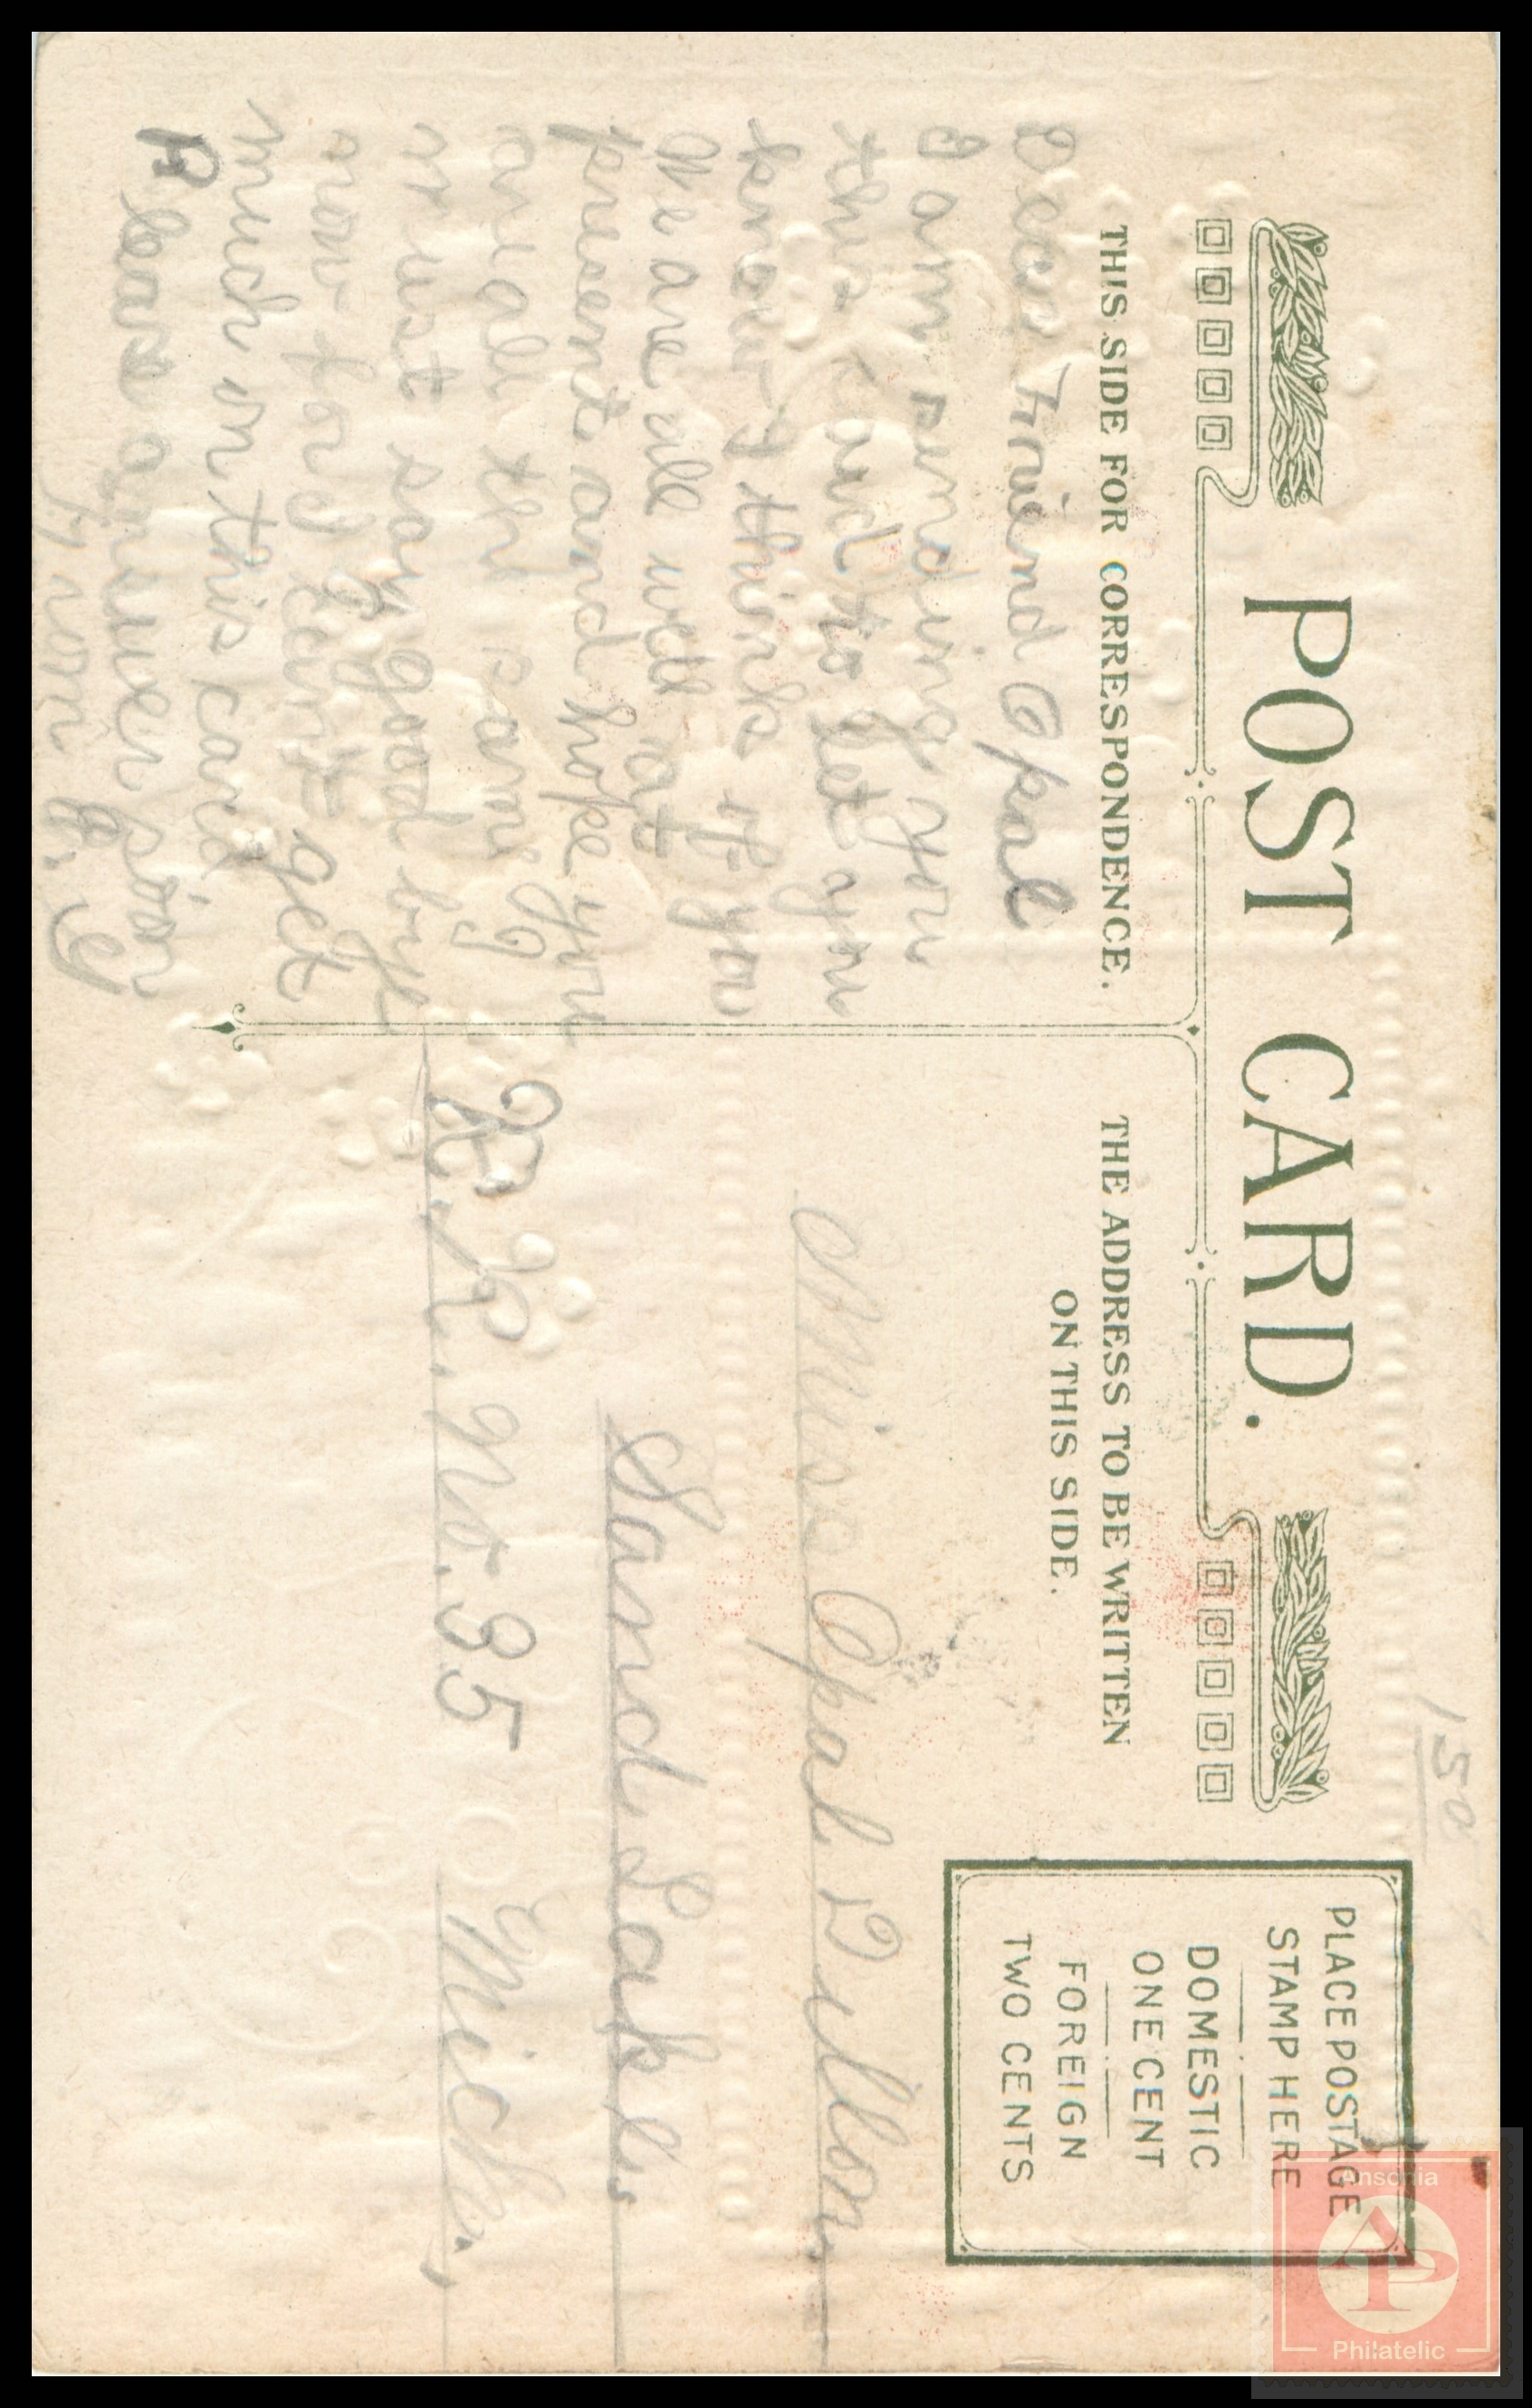 POST CARD.
THIS SIDE FOR CORRESPONDENCE.
THE ADDRESS TO BE WRITTEN
ON THIS SIDE.
PLACE POSTAGE
STAMP HERE
DOMESTIC
ONE CENT
FOREIGN
TWO CENTS
150
Dear Friend Opal
I am sending you
this card to let you
know I think of you
We are all well at
present and hope you
are all the same
must say good bye
now for I can't get
much on this card
Please answer soon
From
Miss Opal Dillon
Sand Lake
R. R. No. 35 Mich.
Ansonia
AP
Philatelic